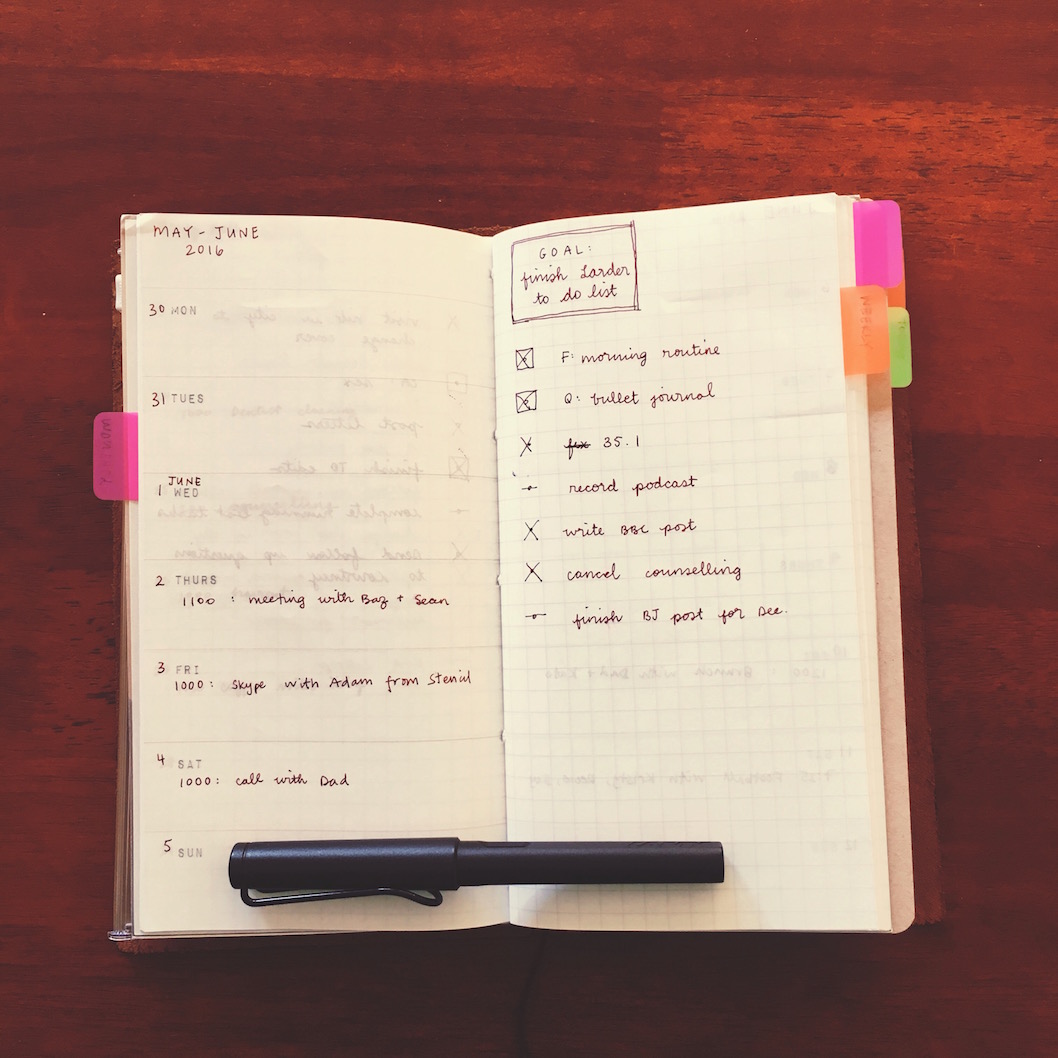 MAY - JUNE
2016
30 MON
31 TUES
JUNE
1 WED
2 THURS
1100 : meeting with Baz + Sean
3 FRI
1000: Skype with Adam from Stencil
4 SAT
1000: call with Dad
5 SUN
GOAL:
finish Larder
to do list
F: morning routine
Q: bullet journal
35.1
record podcast
write BBC post
cancel counselling
finish BJ post for Dee.
MONTHLY
WEEKLY